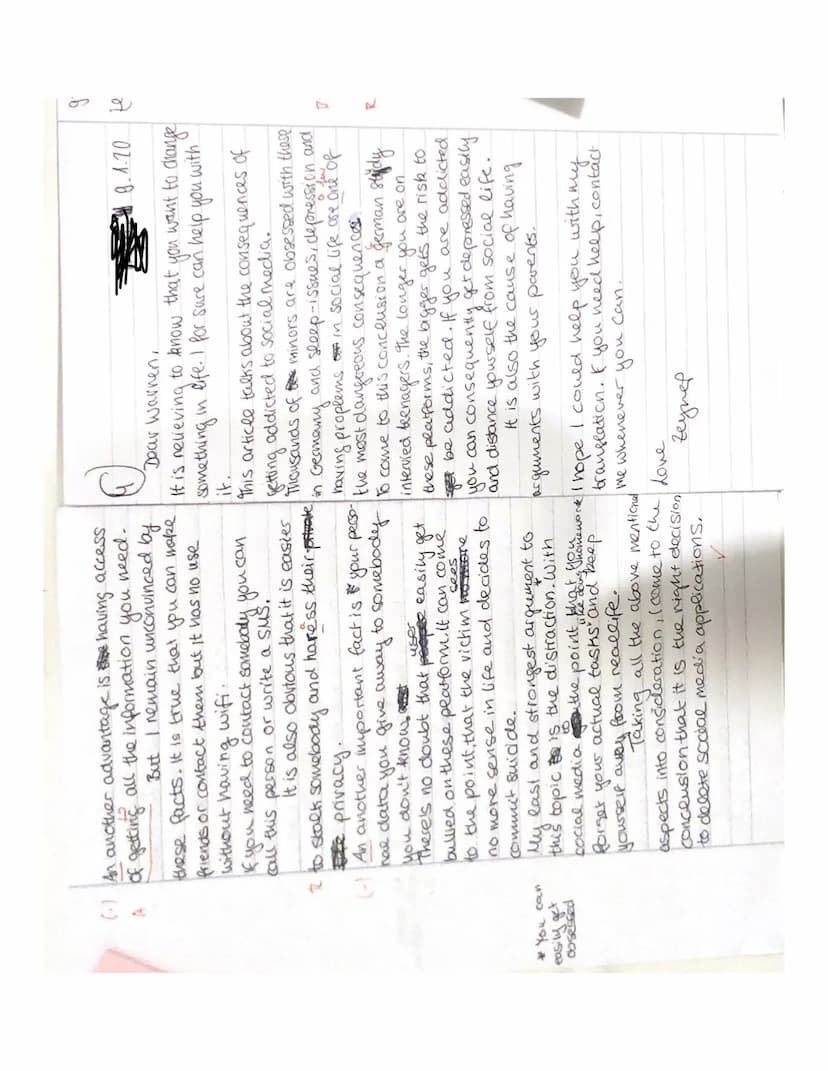 (-) An another advantage is having access
A of getting all the information you need.
But I remain unconvinced by
these facts. It is true that you can make
friends or contact them but it has no use
without having wifi.
If you need to contact somebody you can
call this person or write a sms.
It is also obvious that it is easier
R to stalk somebody and haress their
privacy.
(-) An another important fact is your perso-
nal data you give away to somebody
you don't know.
There's no doubt that user easily get
bullied on these platform. It can come
to the point, that the victim sees
no more sense in life and decides to
commit suicide.
My last and strongest argument to
this topic is the distraction.* With
social media to the point that you
forget your actual tasks like doing homework and keep
yourself away from real life.
Taking all the above mentione
aspects into consideration, I come to the
conclusion that it is the right decision
to delete social media applications.
* You can
easily get
obsessed
G) 8.1.20
Dear
It is relieving to know that you want to change
something in life. I for sure can help you with
it.
This article talks about the consequences of
getting addicted to social media.
Thousands of minors are obsessed with these
in Germany and sleep-issues, depression and
having proplems in social life are one of
the most dangerous consequences.
To come to this conclusion a german study
intervied teenagers. The longer you are on
these platforms, the bigger gets the risk to
be addicted. If you are addicted
you can consequently get depressed easily
and distance yourself from social life.
It is also the cause of having
arguments with your parents.
I hope I could help you with my
translation. If you need help, contact
me whenever you can.
Love
Zeynep